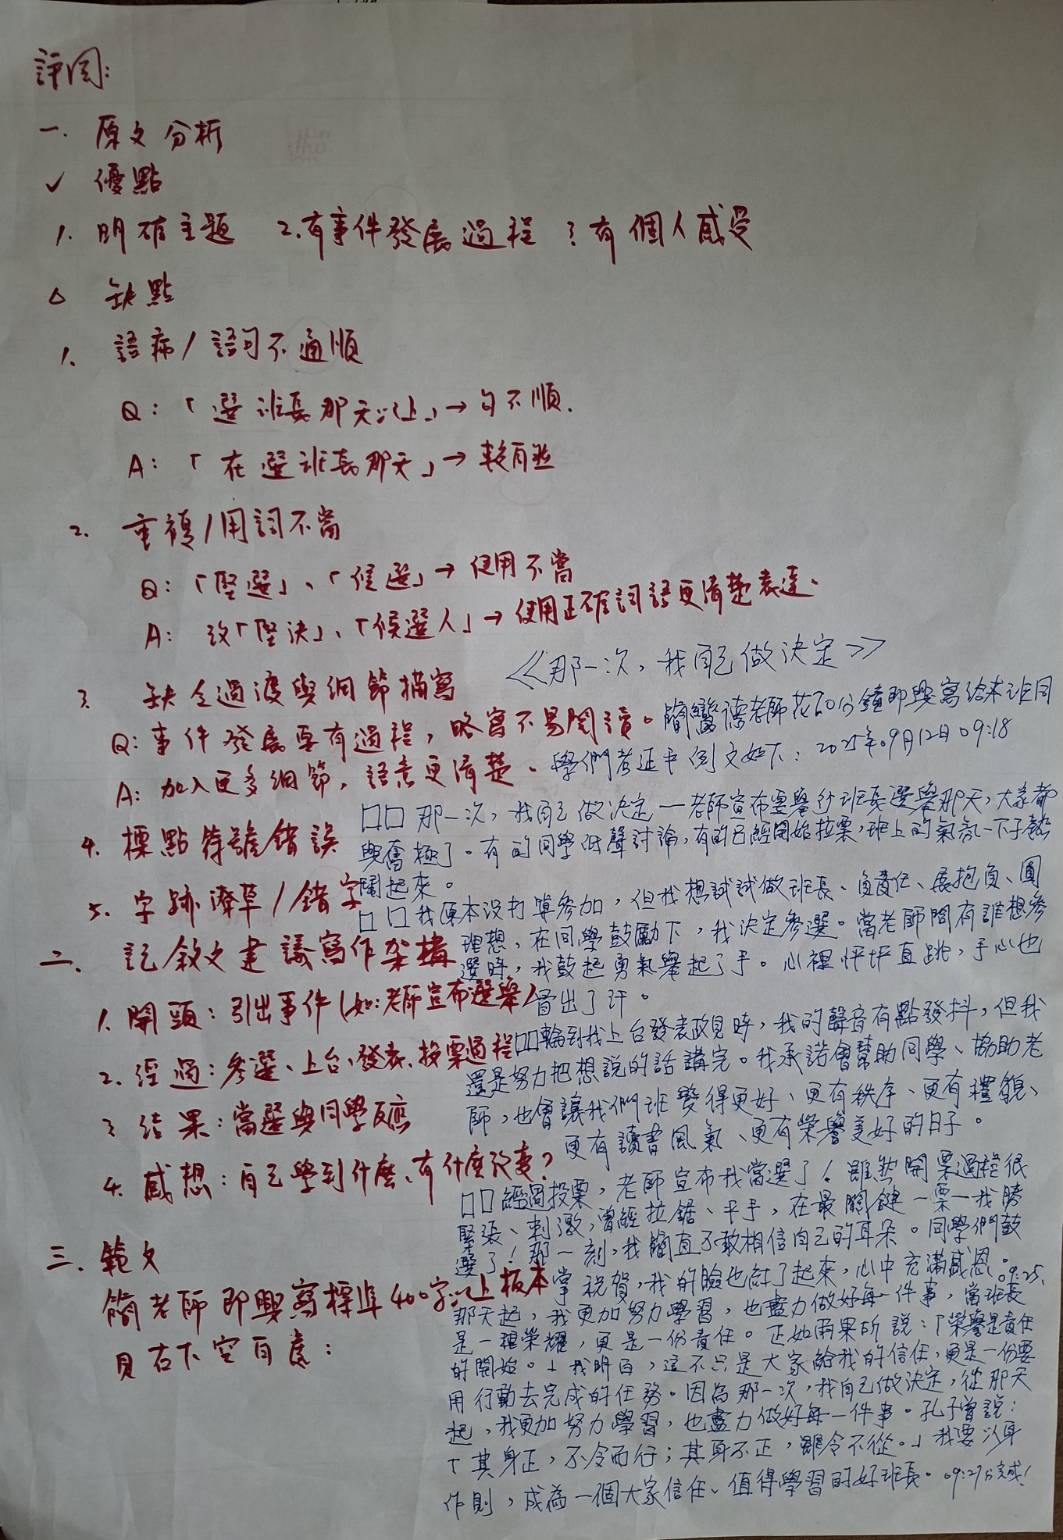 評閱:
一. 原文分析
✓ 優點
1. 明確主題 2.有事件發展過程 3有個人感受
△ 缺點
1. 語病/語句不通順
Q:「選班長那天以上」→句不順.
A:「在選班長那天」→較自然
2. 重複/用詞不當
Q:「堅選」、「候選」→使用不當
A: 改「堅決」、「候選人」→使用正確詞語更清楚表達.
3 缺乏過渡與細節描寫
Q:事件發展要有過程,略寫不易閱讀。
A:加入更多細節,語意更清楚.
4. 標點符號錯誤
5. 字跡潦草/錯字
二、記敘文建議寫作架構
1.開頭:引出事件(如:老師宣布選舉)
2.經過:參選、上台、發表、投票過程
3 結果:當選與同學反應
4.感想:自己學到什麼、有什麼改變?
三.範文
簡老師即興寫標準400字以上版本
見右下空白處:
《那一次,我自己做決定》
簡 德老師花 分鐘即興寫給本班同
學們 正中例文如下: 2025年09月12日09:18
口口那一次,我自己做決定—老師宣布要舉行班長選舉那天,大家都
興奮極了。有的同學低聲討論,有的已經開始拉票,班上的氣氛一下子熱
鬧起來。
口口我原本沒打算參加,但我想試試做班長、負責任、展抱負、圓
理想,在同學鼓勵下,我決定參選。當老師問有誰想參
選時,我鼓起勇氣舉起了手。心裡怦怦直跳,手心也
冒出了汗。
口口輪到我上台發表政見時,我的聲音有點發抖,但我
還是努力把想說的話講完。我承諾會幫助同學、協助老
師,也會讓我們班變得更好、更有秩序、更有禮貌、
更有讀書風氣、更有榮譽美好的日子。
口口經過投票,老師宣布我當選了!雖然開票過程很
緊張、刺激,曾經拉鋸、平手,在最關鍵一票—我勝
選了!那一刻,我簡直不敢相信自己的耳朵。同學們鼓
掌祝賀,我的臉也紅了起來,心中充滿感恩。09:25.
那天起,我更加努力學習,也盡力做好每一件事,當班長
是一種榮耀,更是一份責任。正如雨果所說:「榮譽是責任
的開始。」我明白,這不只是大家給我的信任,更是一份要
用行動去完成的任務。因為那一次,我自己做決定,從那天
起,我更加努力學習,也盡力做好每一件事。孔子曾說:
「其身正,不令而行;其身不正,雖令不從。」我要以身
作則,成為一個大家信任、值得學習的好班長。09:27分完成!